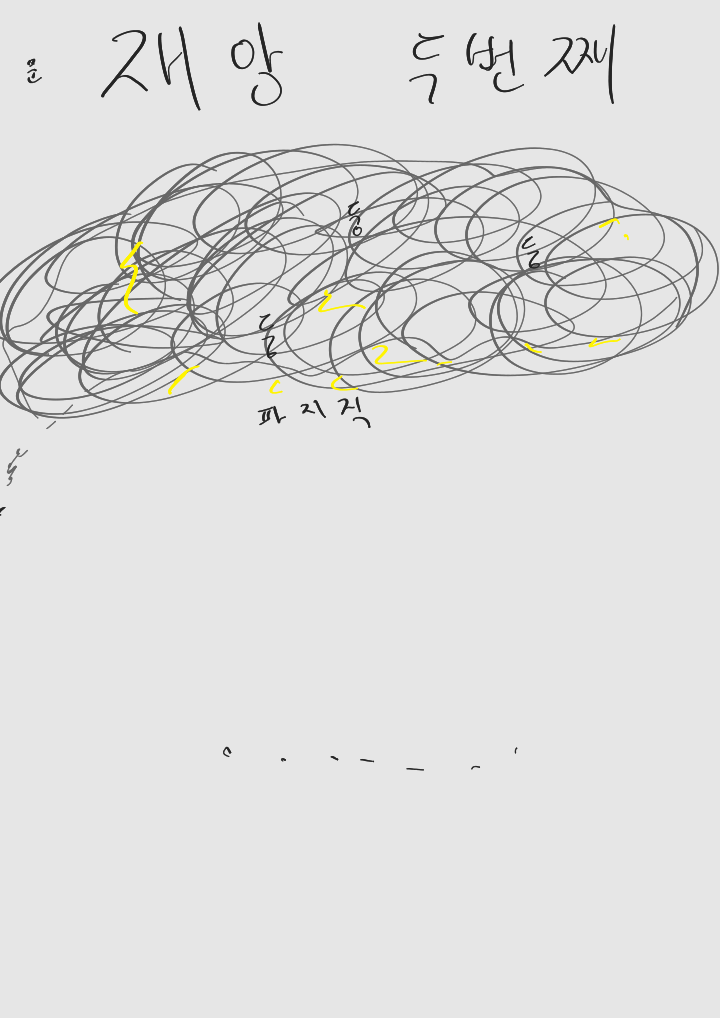 은 재앙 두번째
둥
둥
둥
파지직